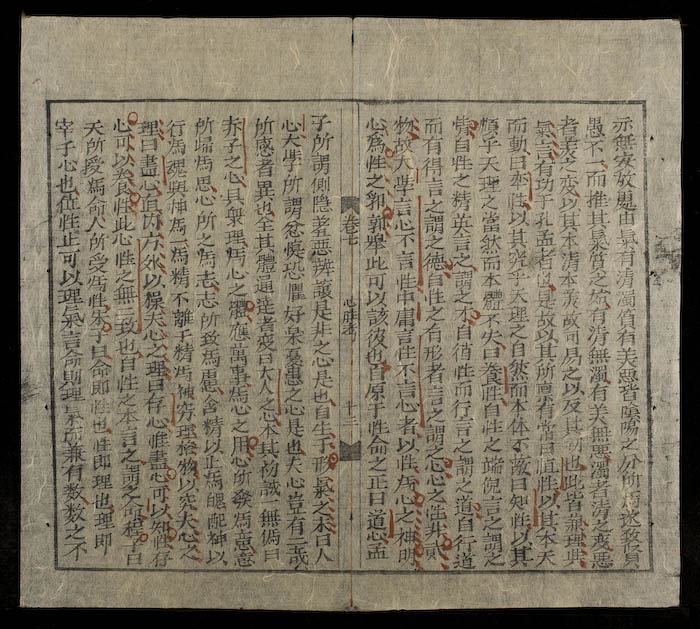 示無安放處由氣有清濁質有美惡皆陰陽之分所為遂致賢
愚不一而推其氣質之始有清無濁有美無惡濁者清之變惡
者美之變以其本清本美故可易之以反其初也此皆兼理與
氣言有功于孔孟者也是故以其所秉有常曰恒性以其本天
而動曰率性以其究乎天理之自然而本体不蔽曰知性以其
順乎天理之當然而本體不失曰養性自性之端倪言之謂之
情自性之精英言之謂之才自循性而行言之謂之道自行道
而有得言之謂之德自性之有形者言之謂之心心之性非貳
物故大學言心不言性中庸言性不言心者以性為心之神明
心為性之郛郭舉此可以該彼也自原于性命之正曰道心孟
卷七 心性考 十三
子所謂惻隐羞惡辨讓是非之心是也自生于形氣之末曰人
心大學所謂忿懥恐懼好樂憂患之心是也夫心豈有二哉
所感者異也全其體通達者變曰大人之心本其初誠一無偽曰
赤子之心具衆理為心之體應萬事為心之用心所發為意意
所歸為思心所之為志志所致為慮含精以止為魄配神以
行為魂與神為一為精不離于精為神窮理格物以究夫心之
理曰盡心直內方外以操夫心之理曰存心惟盡心可以知性存
心可以養性此心性之無二致也自性之本言之謂之命程子曰
天所受為命人所受為性朱子曰命即性也性即理也理即
宰乎心也位性止可以理氣言命則理氣所兼有數數之不